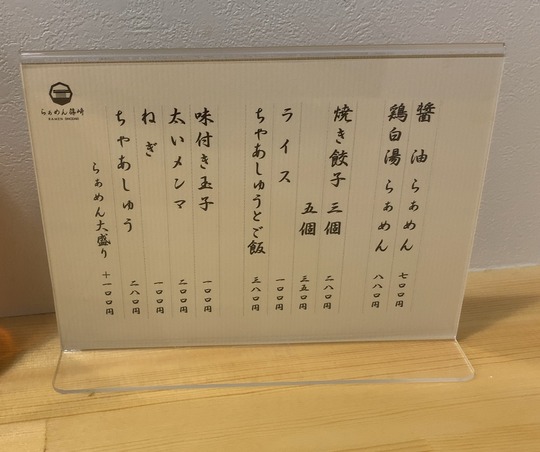 醤油らぁめん 七〇〇円
鶏白湯らぁめん 八八〇円
焼き餃子 三個 二八〇円
五個 三五〇円
ライス 一〇〇円
ちゃあしゅうとご飯 三八〇円
味付き玉子 一〇〇円
太いメンマ 二〇〇円
ねぎ 一〇〇円
ちゃあしゅう 二八〇円
らぁめん大盛り 十一〇〇円
らぁめん
RAMEN